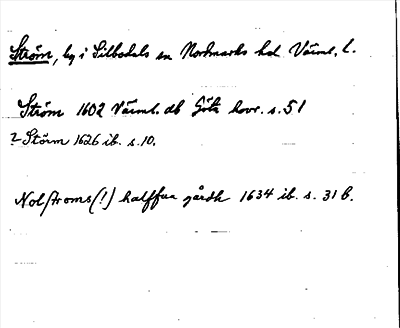 Ström, by i Silbodals sn Nordmarks hd Värml. l.
Ström 1602 Värml. db Göta hovr. s. 51
? Störm 1626 ib. s. 10.
Nolstroms (!) halffua gårdh 1634 ib. s. 31 b.